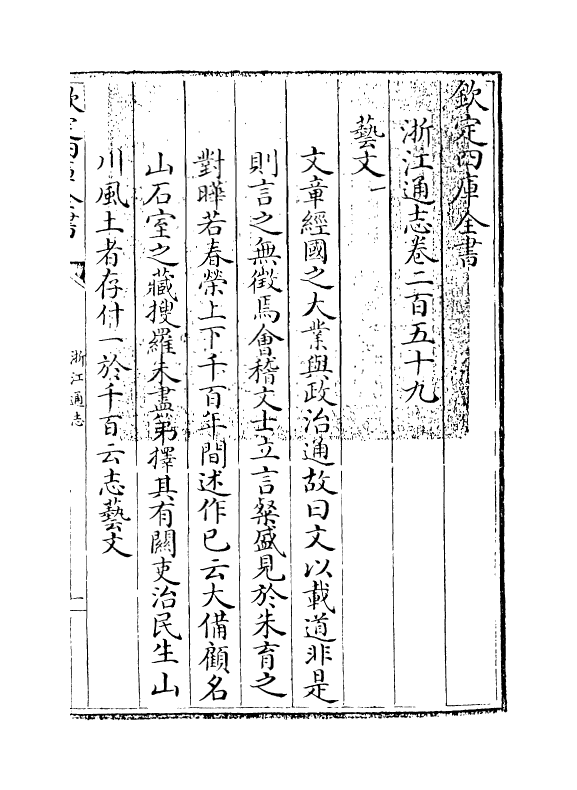 欽定四庫全書
浙江通志卷二百五十九
藝文一
文章經國之大業與政治通故曰文以載道非是
則言之無徵焉會稽文士立言粲盛見於朱育之
對曄若春榮上下千百年間述作已云大備顧名
山石室之藏搜羅未盡第擇其有關吏治民生山
川風土者存什一於千百云志藝文
欽定四庫全書
浙江通志